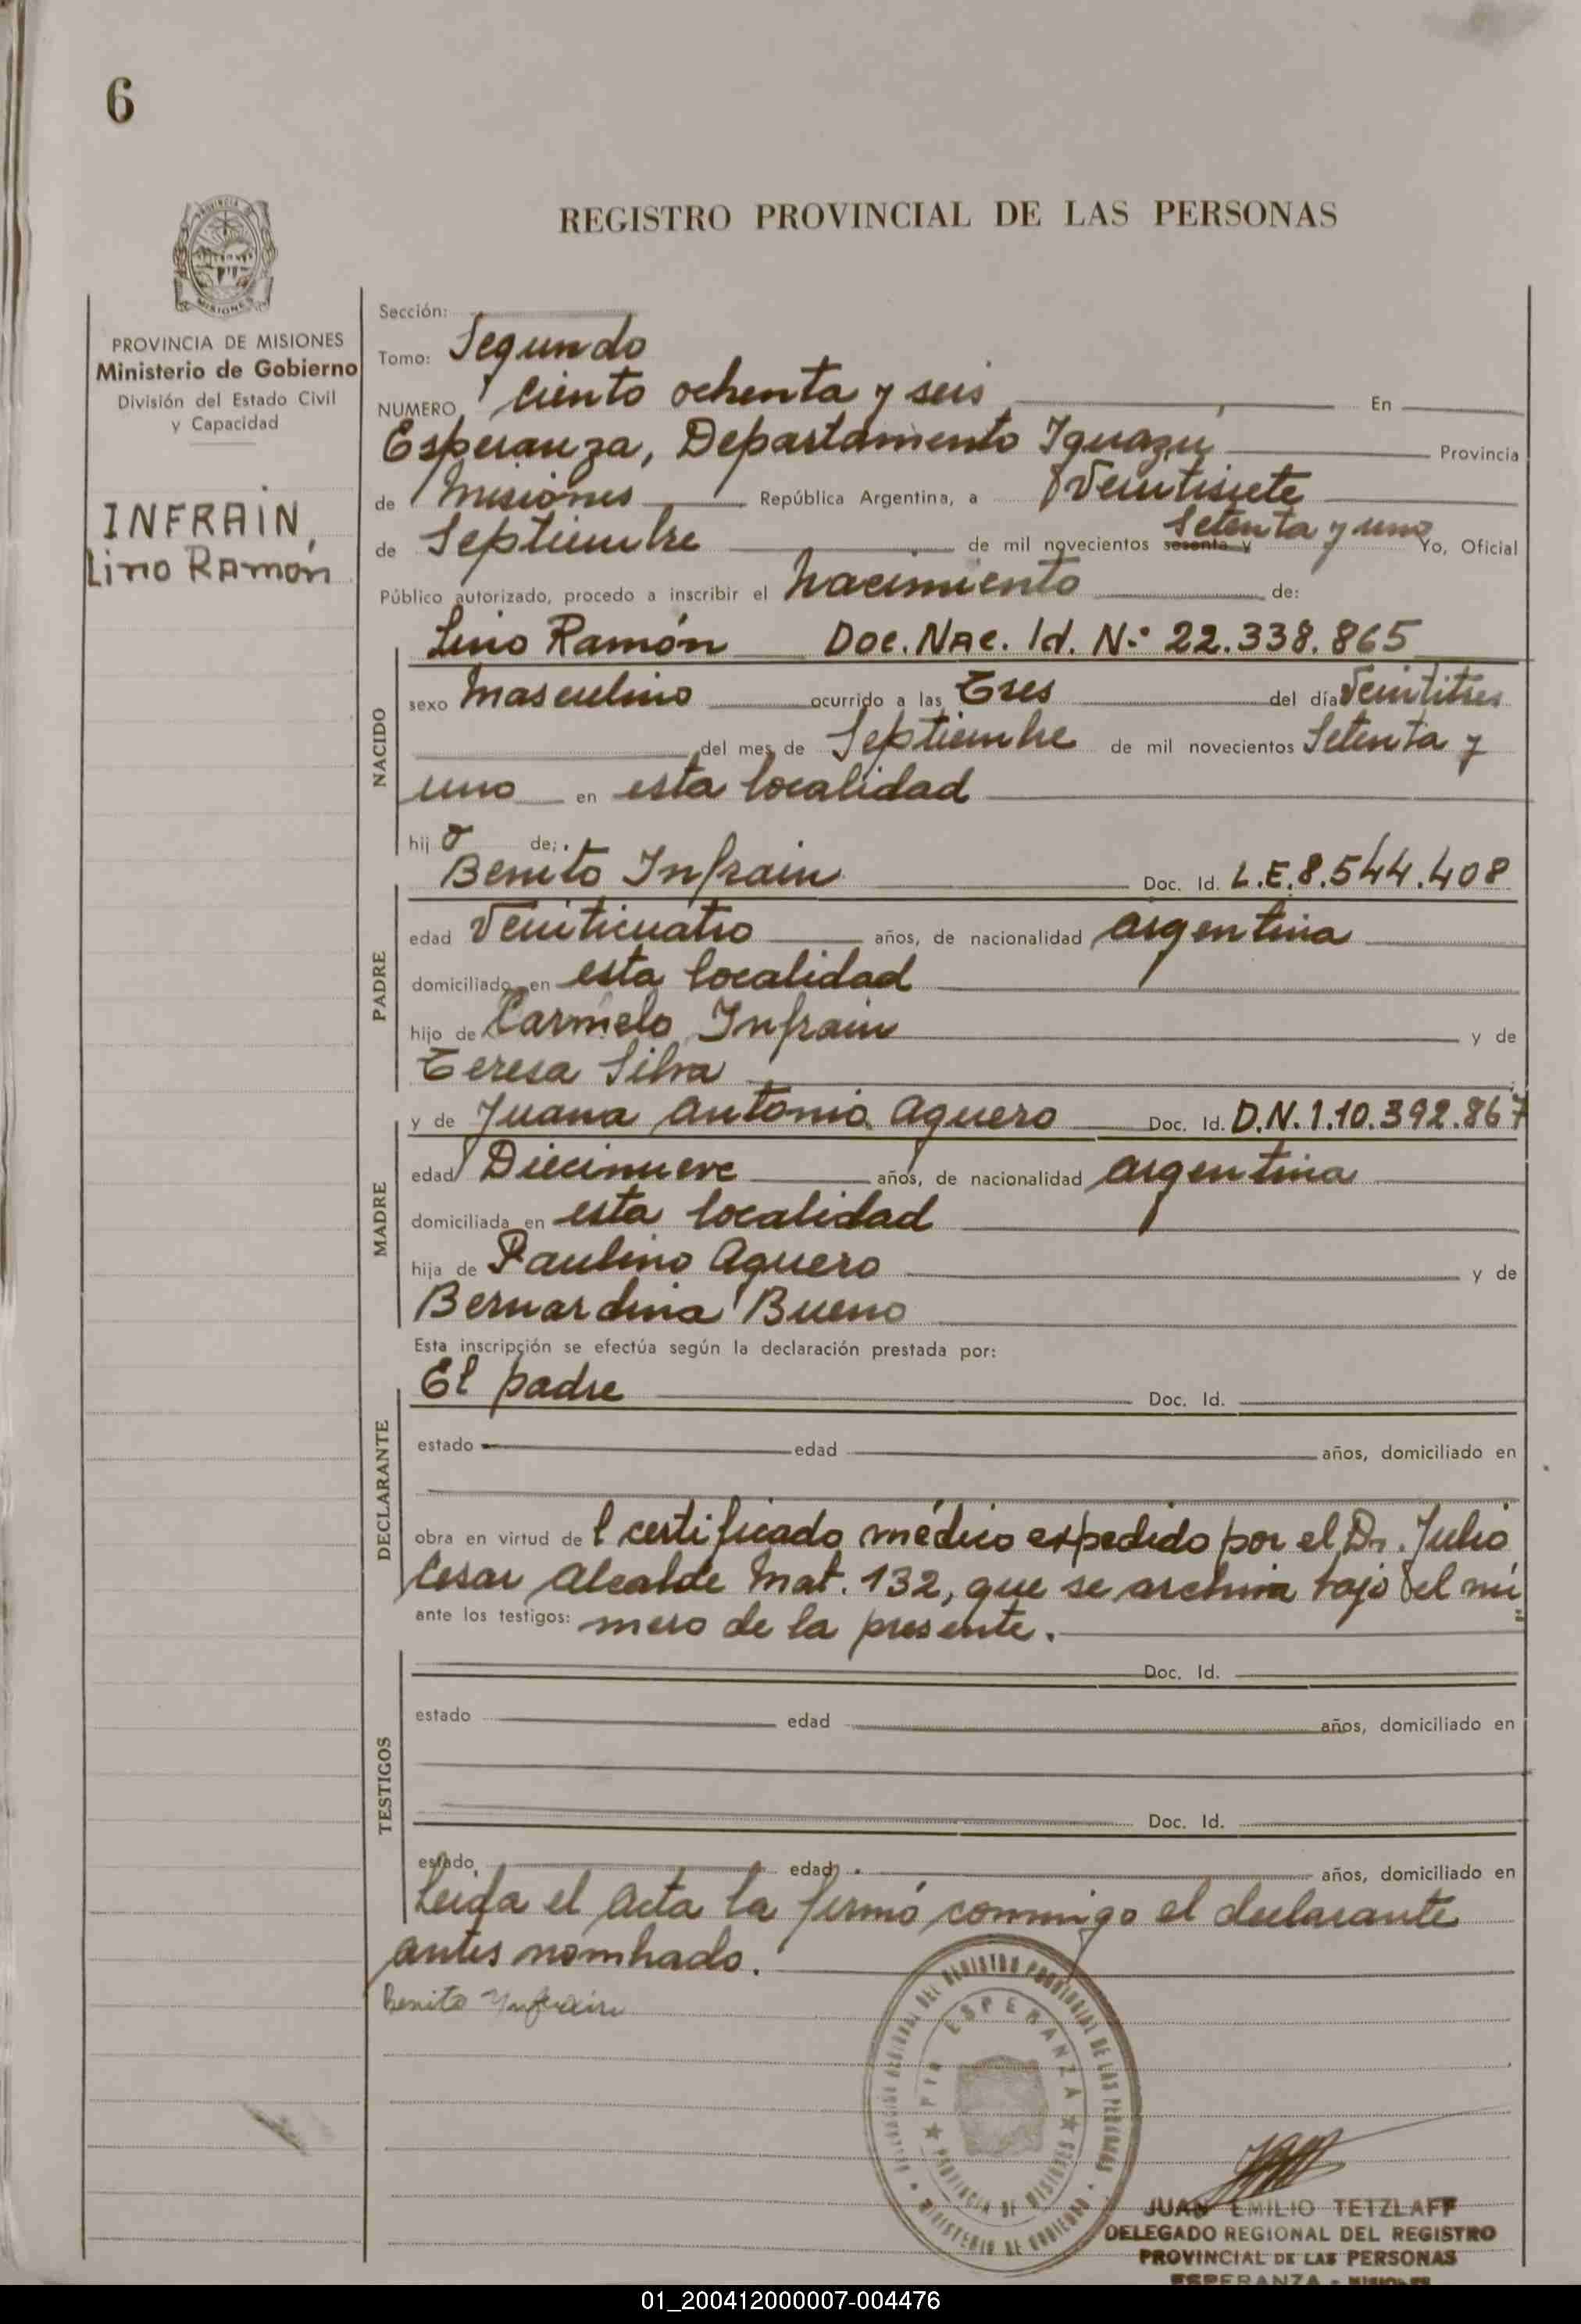 6
PROVINCIA DE MISIONES
Ministerio de Gobierno
División del Estado Civil
y Capacidad
INFRAIN,
Lino Ramón
REGISTRO PROVINCIAL DE LAS PERSONAS
Sección:
Tomo: Segundo
NUMERO Ciento ochenta y seis En
Esperanza, Departamento Iguazú Provincia
de Misiones República Argentina, a Veintisiete
de Septiembre de mil novecientos sesenta y Setenta y uno Yo, Oficial
Público autorizado, procedo a inscribir el Nacimiento de:
NACIDO
Lino Ramón Doc. Nac. Id. Nº 22.338.865
sexo Masculino ocurrido a las Tres del día Veintitres
del mes de Septiembre de mil novecientos Setenta y
uno en esta localidad
hij o de:
PADRE
Benito Infrain Doc. Id. L.E.8.544.408
edad Veinticuatro años, de nacionalidad argentina
domiciliado en esta localidad
hijo de Carmelo Infrain y de
Teresa Silva
MADRE
y de Juana Antonia Aguero Doc. Id. D.N.I.10.392.867
edad Diecinueve años, de nacionalidad argentina
domiciliada en esta localidad
hija de Paulino Aguero y de
Bernardina Bueno
Esta inscripción se efectúa según la declaración prestada por:
DECLARANTE
El padre Doc. Id.
estado edad años, domiciliado en
obra en virtud de l certificado médico expedido por el Dr. Julio
Cesar Alcalde Mat. 132, que se archiva bajo el nú
ante los testigos: mero de la presente.
TESTIGOS
Doc. Id.
estado edad años, domiciliado en
Doc. Id.
estado edad años, domiciliado en
Leida el Acta la firmó conmigo el declarante
antes nombrado.
Benito Infrain
DELEGACION REGIONAL DEL REGISTRO PROVINCIAL DE LAS PERSONAS
MINISTERIO DE GOBIERNO
ESPERANZA
PROVINCIA DE MISIONES
JUAN EMILIO TETZLAFF
DELEGADO REGIONAL DEL REGISTRO
PROVINCIAL DE LAS PERSONAS
ESPERANZA - MISIONES
01_200412000007-004476